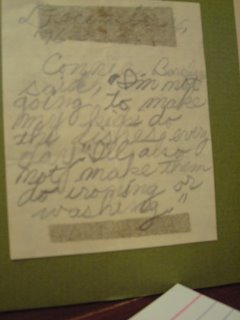 December
Connie
said, "I'm not
going to make
my kids do
the dishes every
day. I'll also
not make them
do ironing or
washing."